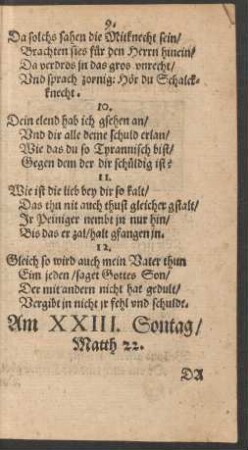 9.
Da solchs sahen die Mitknecht sein/
Brachten sies für den Herrn hinein/
Da verdros in das gros vnrecht/
Vnd sprach zornig: Hör du Schalck-
knecht.
10.
Dein elend hab ich gsehen an/
Vnd dir alle deine schuld erlan/
Wie das du so Tyrannisch bist/
Gegen dem der dir schüldig ist?
11.
Wie ist die lieb bey dir so kalt/
Das thu nit auch thust gleicher gstalt/
Ir Peiniger nembt jn nur hin/
Bis das er zal/halt gfangen jn.
12.
Gleich so wird auch mein Vater thun
Eim jeden/saget Gottes Son/
Der mit andern nicht hat gedult/
Vergibt jn nicht jr fehl vnd schuldt.
Am XXIII. Sontag/
Matth 22.
DA